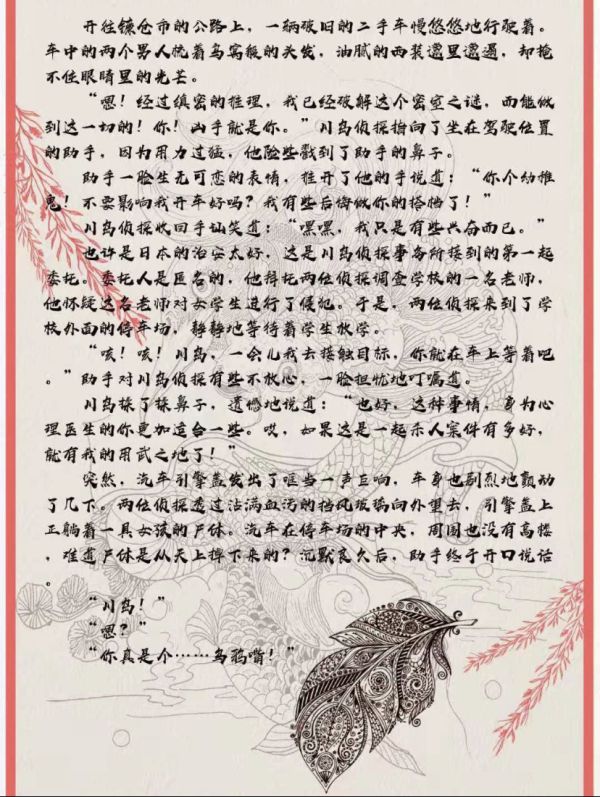 开往镰仓市的公路上，一辆破旧的二手车慢悠悠地行驶着。
车中的两个男人梳着鸟窝般的头发，油腻的西装邋里邋遢，却掩
不住眼睛里的光芒。
“嗯！经过缜密的推理，我已经破解这个密室之谜，而能做
到这一切的！你！凶手就是你。”川鸟侦探指向了坐在驾驶位置
的助手，因为用力过猛，他险些戳到了助手的鼻子。
助手一脸生无可恋的表情，推开了他的手说道：“你个幼稚
鬼！不要影响我开车好吗？我有些后悔做你的搭档了！”
川鸟侦探收回手讪笑道：“嘿嘿，我只是有些兴奋而已。”
也许是日本的治安太好，这是川鸟侦探事务所接到的第一起
委托。委托人是匿名的，他拜托两位侦探调查学校的一名老师，
他怀疑这名老师对女学生进行了侵犯。于是，两位侦探来到了学
校外面的停车场，静静地等待着学生放学。
“咳！咳！川鸟，一会儿我去接触目标，你就在车上等着吧
。”助手对川鸟侦探有些不放心，一脸担忧地叮嘱道。
川鸟揉了揉鼻子，遗憾地说道：“也好，这种事情，身为心
理医生的你更加适合一些。哎，如果这是一起杀人案件有多好，
就有我的用武之地了！”
突然，汽车引擎盖发出了哐当一声巨响，车身也剧烈地颤动
了几下。两位侦探透过沾满血污的挡风玻璃向外望去，引擎盖上
正躺着一具女孩的尸体。汽车在停车场的中央，周围也没有高楼
，难道尸体是从天上掉下来的？沉默良久后，助手终于开口说话
。
“川鸟！”
“嗯？”
“你真是个……乌鸦嘴！”